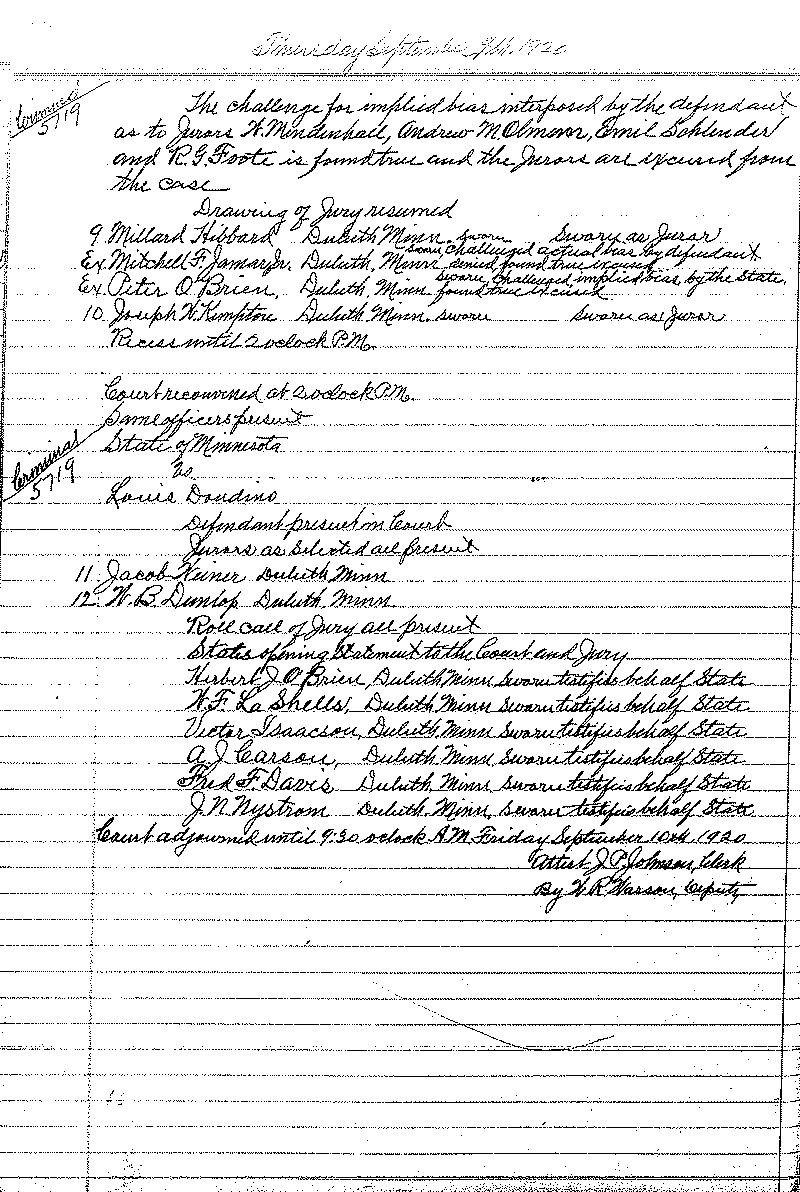 Thursday September 9th 1920
Criminal
5719
The challenge for implied bias interposed by the defendant
as to Jurors W. Mindenhall, Andrew M. Olmem, Emil Sohlender
and R.G. Foote is found true and the Jurors are excused from
the case
Drawing of Jury resumed
9 Millard Hibbard Duluth Minn sworn Sworn as Juror
Ex Mitchell F. Jamar, Jr. Duluth, Minn sworn, challenged actual bias by defendant denied, found true excused
Ex Peter O'Brien, Duluth, Minn sworn challenged implied bias, by the State, found true excused
10 Joseph W. Kimpton Duluth Minn. sworn sworn as Juror
Recess until 2 oclock P.M.
Court reconvened at 2 oclock P.M.
Same officers present
Criminal
5719
State of Minnesota
vs
Louis Dondino
Defendant present in Court
Jurors as selected all present
11 Jacob Weiner Duluth Minn
12 W.B. Dunlop Duluth, Minn
Roll call of Jury all present
States opening statement to the Court and Jury
Herbert J. O'Brien, Duluth Minn sworn testifies behalf State
W.F. La Shells, Duluth Minn sworn testifies behalf State
Victor Isaacson, Duluth, Minn sworn testifies behalf State
A.J. Carson, Duluth Minn sworn testifies behalf State
Fred F. Davis Duluth, Minn sworn testifies behalf State
J.N. Nystrom Duluth, Minn, sworn testifies behalf State
Court adjourned until 9:30 oclock A.M. Friday September 10th, 1920
Attest J.P. Johnson, Clerk
By W.R. Warson, Deputy